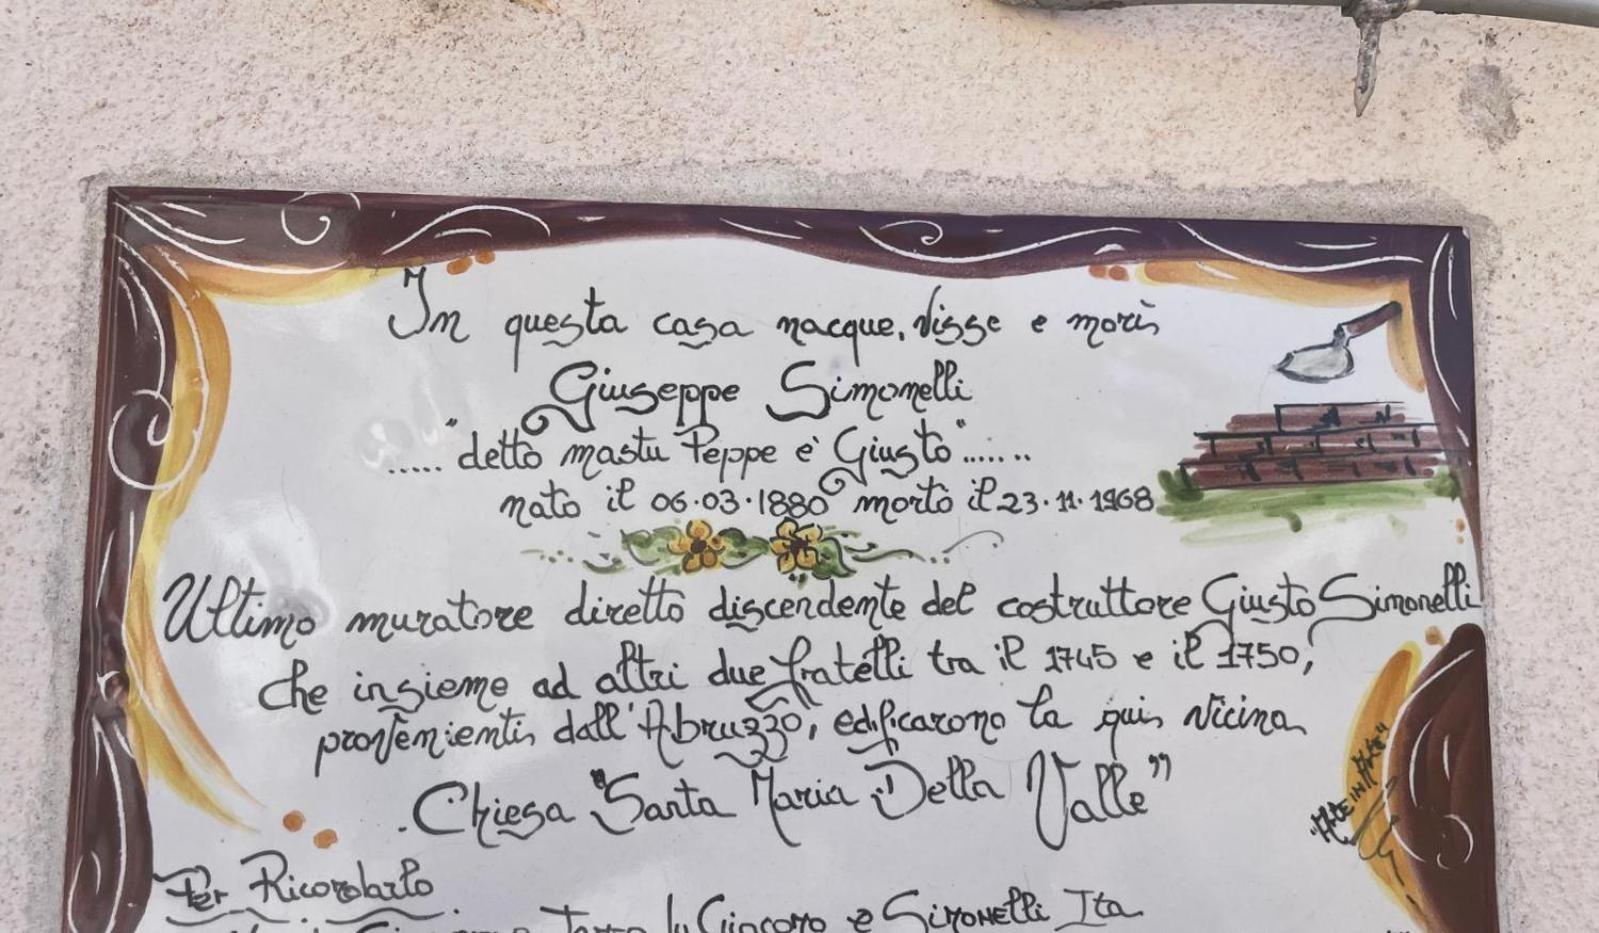 In questa casa nacque, visse e morì
Giuseppe Simonelli
....."detto mastu Peppe e' Giusto"......
nato il 06·03·1880 morto il 23·11·1968
Ultimo muratore diretto discendente del costruttore Giusto Simonelli
che insieme ad altri due fratelli tra il 1745 e il 1750,
provenienti dall'Abruzzo, edificarono la qui vicina
Chiesa "Santa Maria Della Valle"
Per Ricordarlo
Giacomo e Simonelli Ita